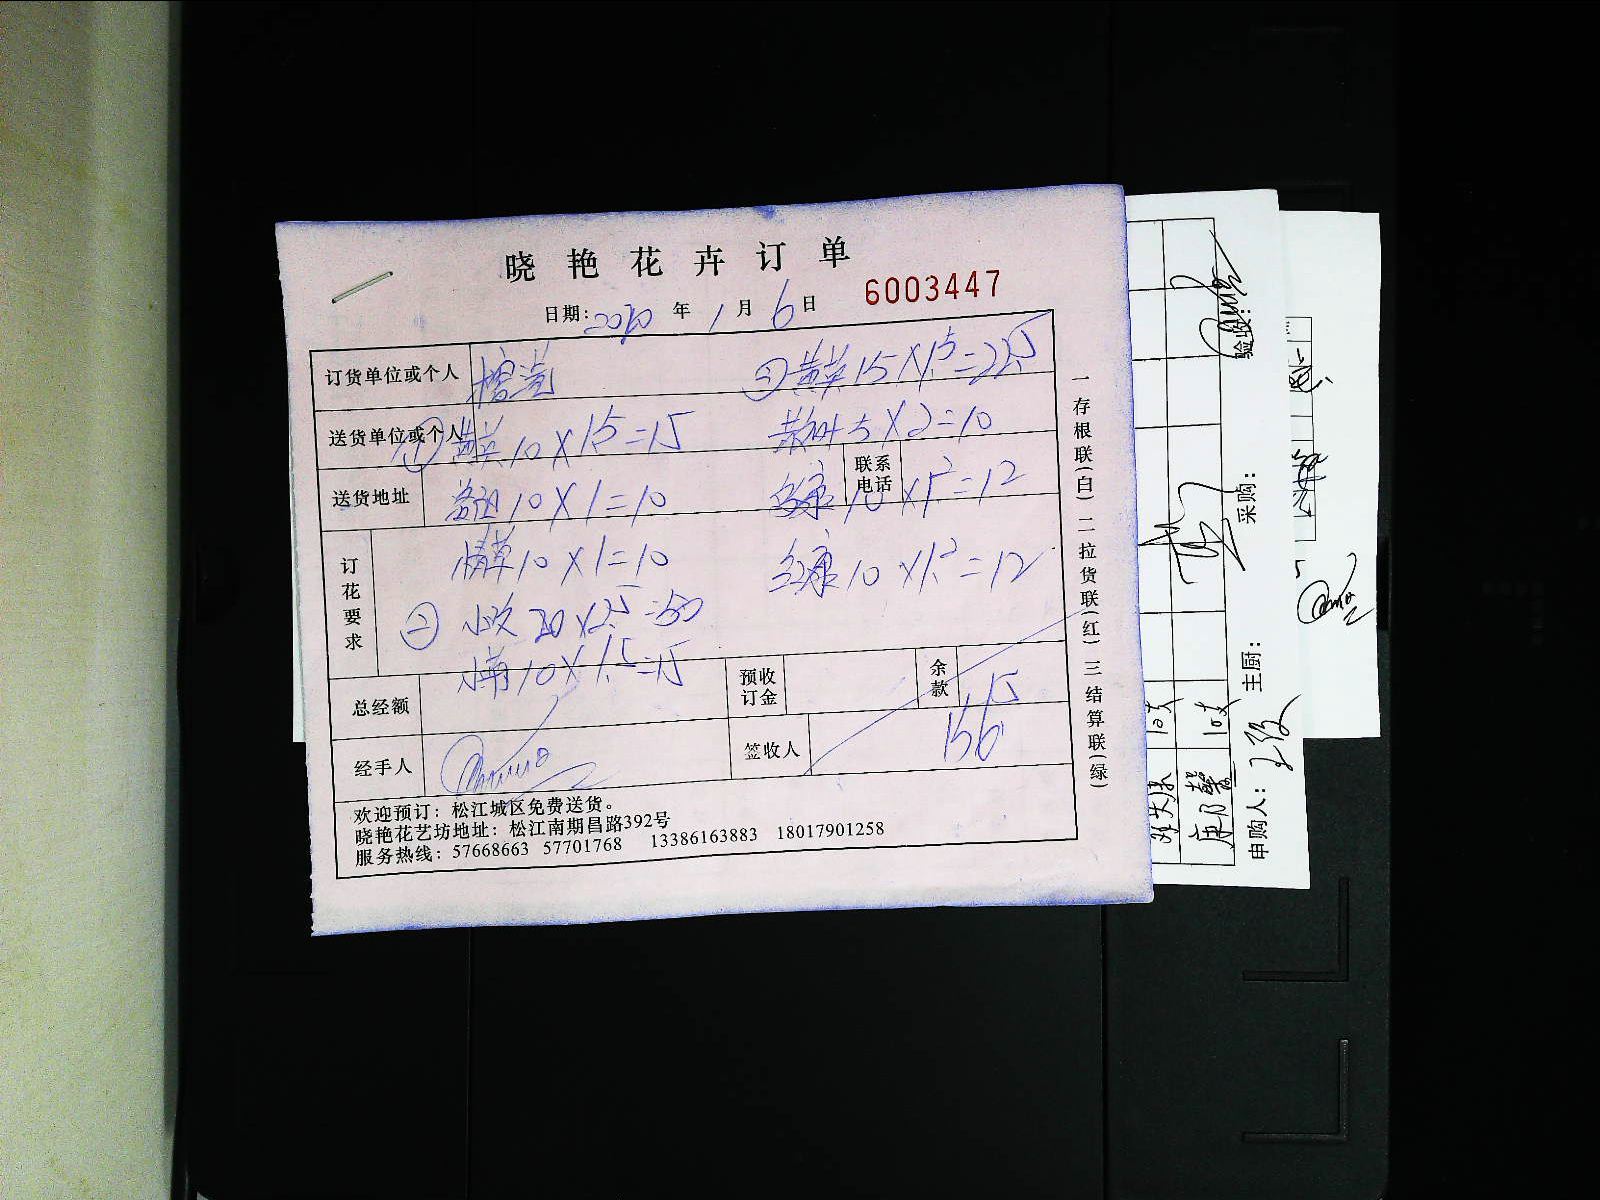 晓艳花卉订单
日期: 2020 年 1 月 6 日 6003447
订货单位或个人 ③ 黄英 15 X 1.5 = 22.5
送货单位或个人 ① 黄英 10 X 1.5 = 15 5 X 2 = 10
送货地址 10 X 1 = 10 联系电话 10 X 1.2 = 12
订花要求 情草 10 X 1 = 10 红康 10 X 1.2 = 12
② 小玫 20 X 2.5 = 50
小菊 10 X 1.5 = 15
总经额 预收订金 余款
经手人 签收人 156.5
欢迎预订: 松江城区免费送货。
晓艳花艺坊地址: 松江南期昌路392号
服务热线: 57668663 57701768 13386163883 18017901258
一存根联(白) 二拉货联(红) 三结算联(绿)
验收:
采购:
主厨:
申购人:
10支
10支